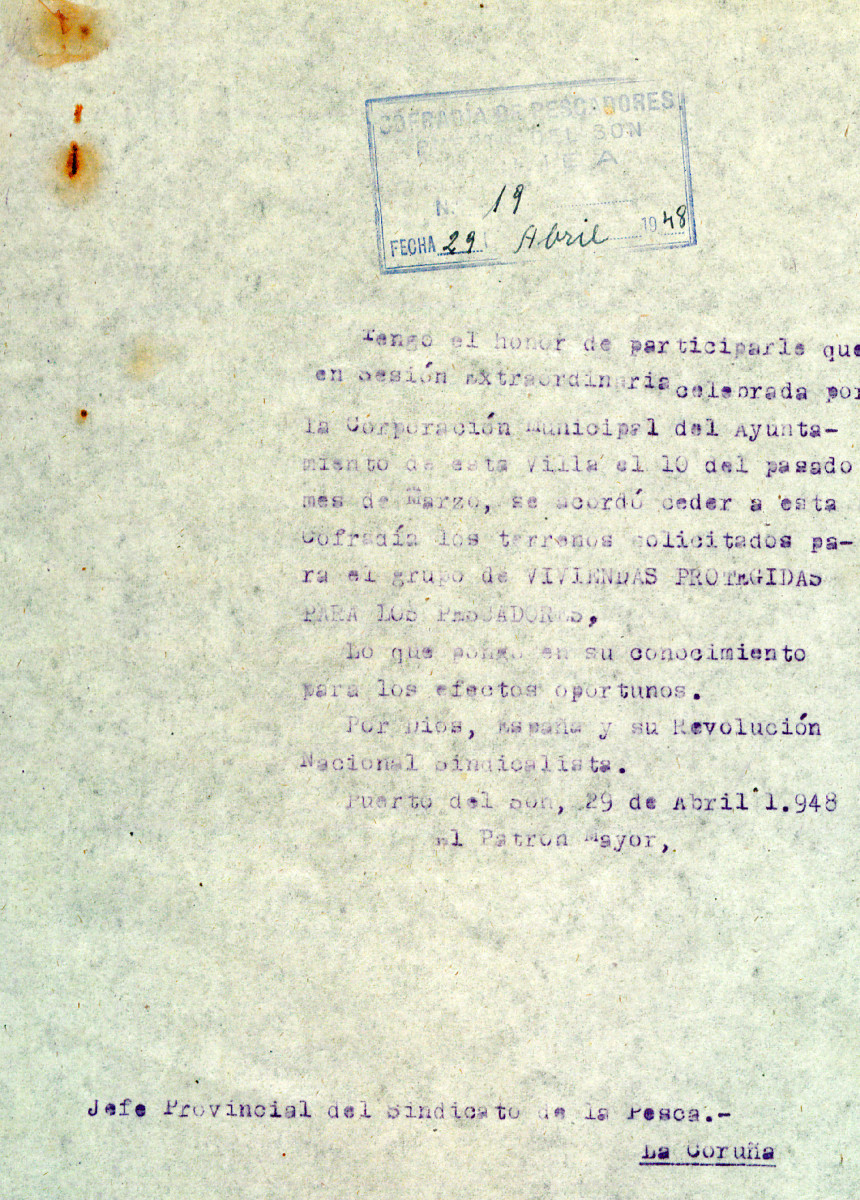 COFRADÍA DE PESCADORES
DEL SON
N. 19
FECHA 29 Abril 1948
Tengo el honor de participarle que
en Sesión Extraordinaria celebrada por
la Corporación Municipal del Ayunta-
miento de esta Villa el 10 del pasado
mes de Marzo, se acordó ceder a esta
Cofradía los terrenos solicitados pa-
ra el grupo de VIVIENDAS PROTEGIDAS
PARA LOS PESCADORES,
Lo que pongo en su conocimiento
para los efectos oportunos.
Por Dios, España y su Revolución
Nacional Sindicalista.
Puerto del Son, 29 de Abril 1.948
El Patron Mayor,
Jefe Provincial del Sindicato de la Pesca.-
La Coruña